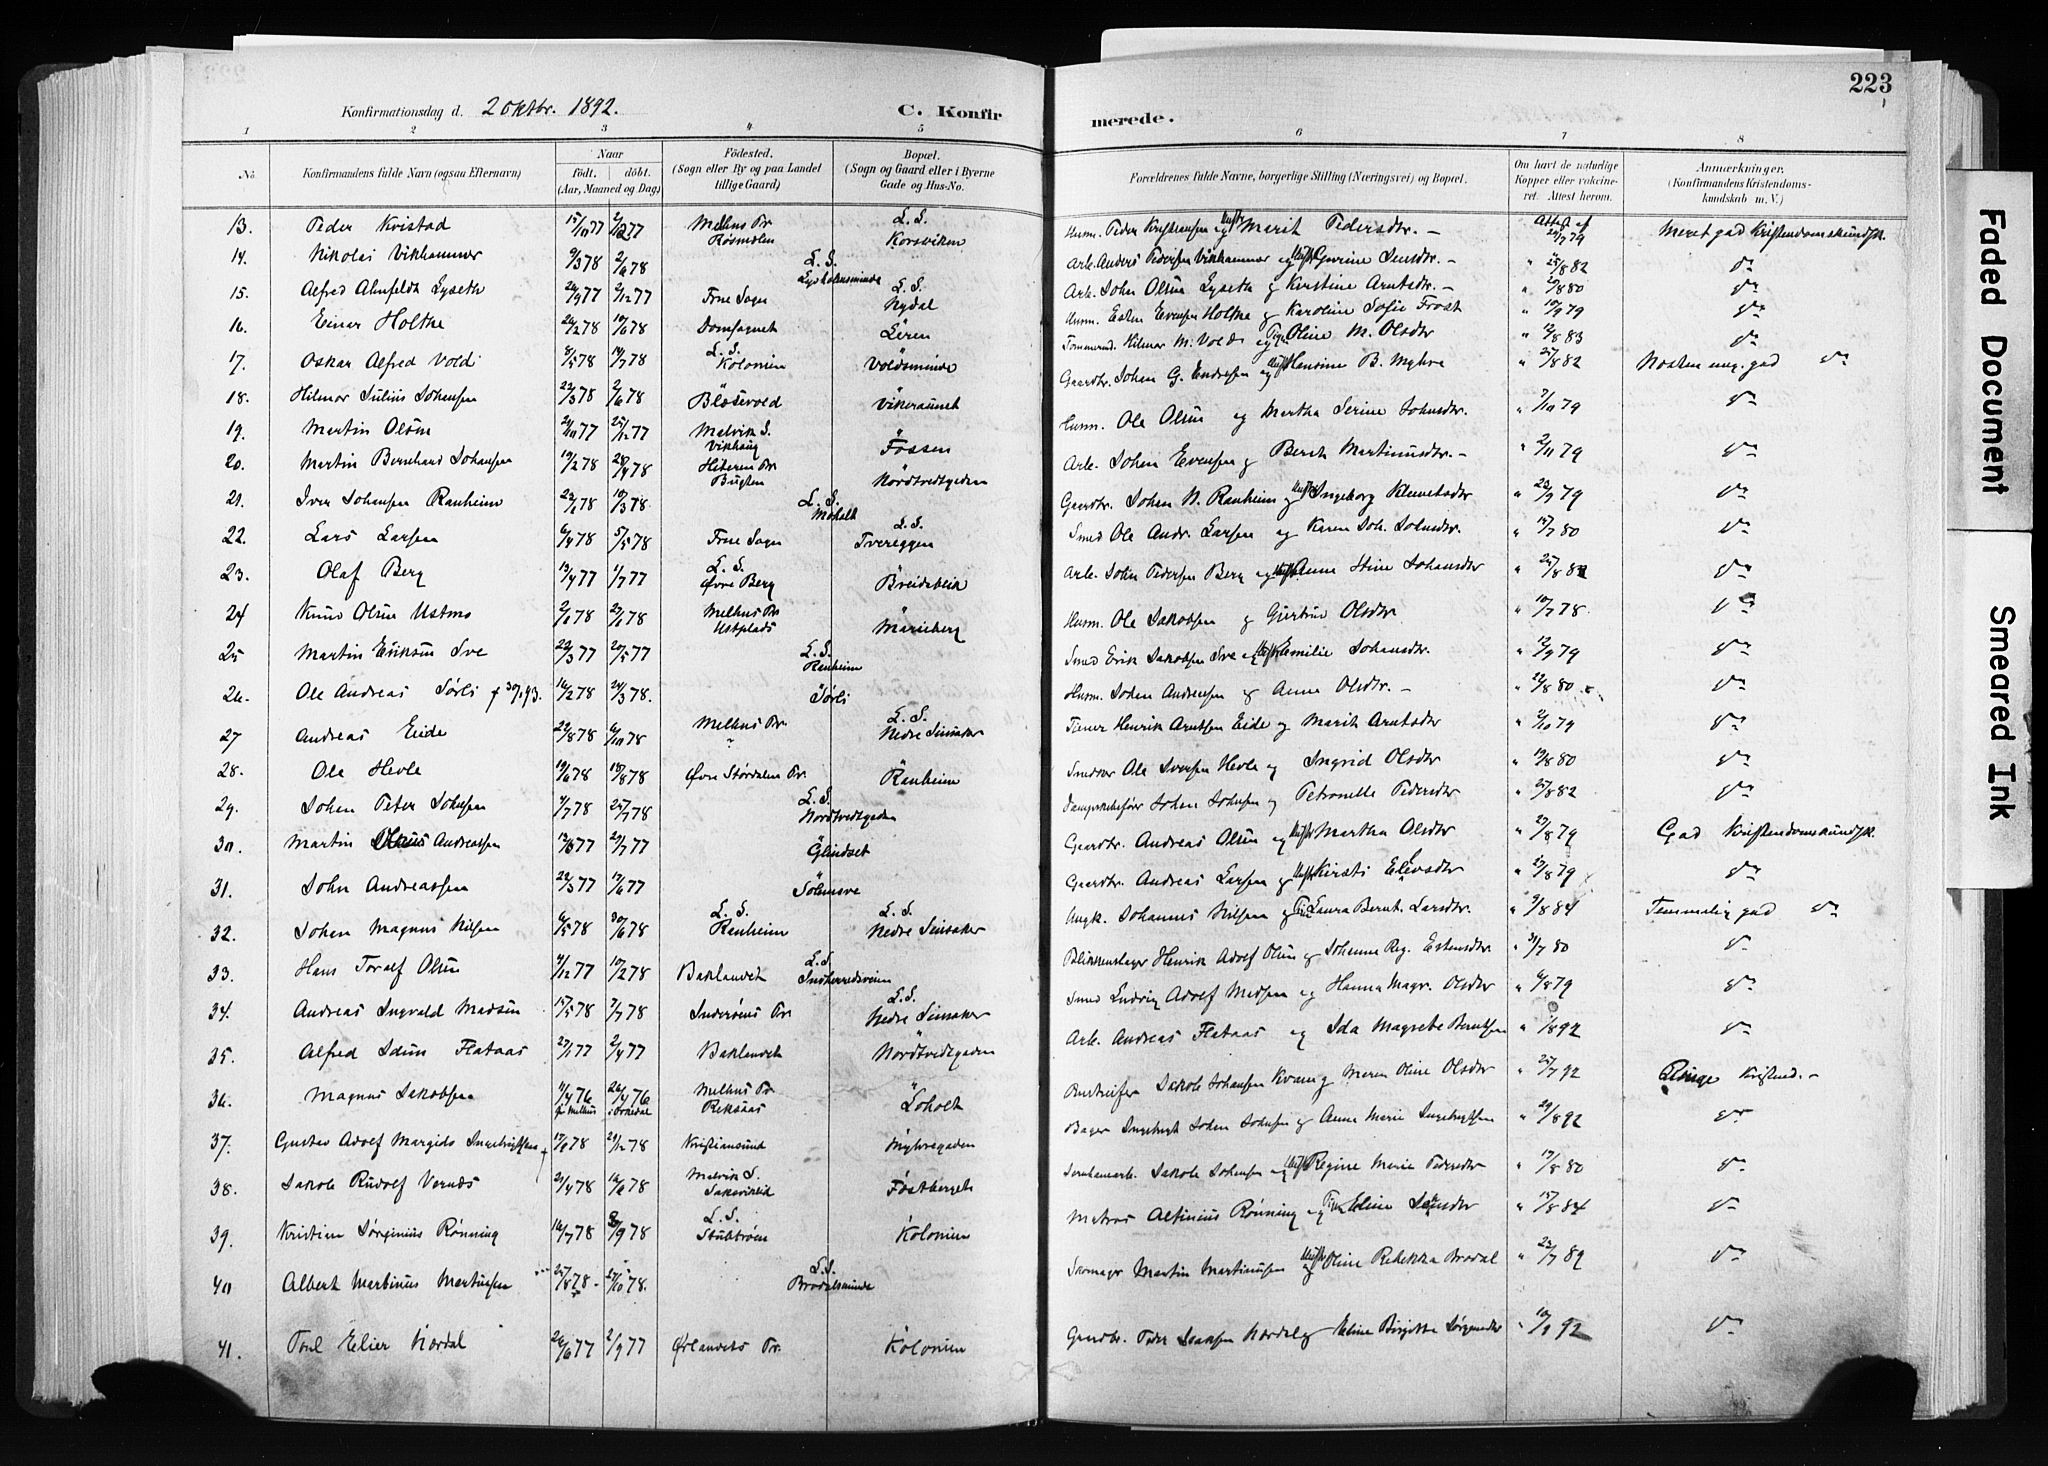 223
Konfirmationsdag d. 2 oktbr. 1892.
C. Konfir
merede.
1 2 3 4 5 6 7 8
No.
Konfirmandens fulde Navn (ogsaa Efternavn)
Naar
födt. döbt.
(Aar, Maaned og Dag)
Födested.
(Sogn eller By og paa Landet tillige Gaard)
Bopæl.
(Sogn og Gaard eller i Byerne Gade og Hus-No.
Forældrenes fulde Navne, borgerlige Stilling (Næringsvei) og Bopæl.
Om havt de naturlige Kopper eller vakcineret. Attest herom.
Anmærkninger.
(Konfirmandens Kristendomskundskab m. V.)
13. Peder Kvistad 15/10 77 2/12 77 Melhus Pr. L. S. Korsviken Husm. Peder Kristiansen og Marit Pedersdtr. Attest af 24/7 79 Meret god Kristendomskundsk.
14. Nikolai Vikhammer 9/3 78 2/6 78 L. S. Lysholmsminde Arb. Anders Pedersen Vikhammer og Gurine Jensdtr. 25/8 82
15. Alfred Alnfeldt Lyseth 24/9 77 2/12 77 Frue Sogn L. S. Nydal Arb. John Olsen Lyseth og Kirstine Arntsdtr. 20/8 80
16. Einar Holtke 26/2 78 10/6 78 Domsognet Leren Husm. Esten Evensen Holtke og Karoline Sofie Frost 10/9 79
17. Oskar Alfred Vold 8/5 78 14/7 78 L. S. Kolonien Voldsminde Tømmermd. Hilmar M. Vold og Oline M. Olsdtr 12/8 83
18. Hilmar Julius Johansen 22/3 78 2/6 78 Blåsevold Vikeraunet Gaardbr. Johan G. Endresen og Hansine B. Myhre 25/8 82 Noksaa meg. god
19. Martin Olsen 24/10 77 25/12 77 Malvik S. Vikhaug Fossen Husm. Ole Olsen og Martha Serine Johnsdtr. 7/10 79
20. Martin Bernhard Johansen 19/2 78 28/4 78 Hiteren Pr. Bugten Nordtvedtgaden Arb. Johan Evensen og Berit Martinusdtr. 2/11 79
21. Iver Johansen Ranheim 22/1 78 10/3 78 L. S. Moholt Gaardbr. Johan N. Ranheim og Ingeborg Klemetsdtr 23/9 79
22. Lars Larsen 6/4 78 5/5 78 Frue Sogn L. S. Tvereggen Smed Ole Andr. Larsen og Karen Joh. Johnsdtr. 15/7 80
23. Olaf Berg 13/4 77 1/7 77 L. S. Øvre Berg Breidablik Arb. John Pedersen Berg og Anne Stine Johansdtr
24 Knud Olsen Ustmo 2/1 78 27/1 78 Melhus Pr. Ustplads Marieberg Husm. Ole Jakobsen og Gjertrud Olsdtr 10/7 78.
25 Martin Eriksen Sve 22/3 77 20/5 77 L. S. Ranheim Smed Erik Jakobsen Sve og Emilie Johansdtr. 12/9 79
26. Ole Andreas Sørli 16/2 78 24/3 78. Sørli Husm. Johan Andreasen og Anne Olsdtr. 22/8 80
27 Andreas Eide 22/8 78 6/10 78 Melhus Pr. L. S. Nedre Sinsaker Tjener Henrik Arntsen Eide og Marit Arntsdtr 2/10 79
28. Ole Hevle 19/6 78 18/8 78 Øvre Størdalen Pr. Ranheim Ole Iversen Hevle og Ingrid Olsdtr 19/8 80
29. Johan Peter Johnsen 4/7 78 28/7 78 L. S. Nordtvedtgaden Johan Johnsen og Petronelle Pedersdtr 25/8 82
30. Martin Olaus Andreassen 13/6 77 29/7 77 Grindset Gaardbr. Andreas Olsen og Martha Olsdtr 23/8 79 God Kristendomskundsk.
31. John Andreassen 22/3 77 17/6 77 Gaardbr. Andreas Larsen og Kirsti Elevsdtr 27/8 79
32. Johan Magnus Nilsen 6/5 78 30/6 78 L. S. Ranheim L. S. Nedre Sinsaker Ungk. Johannes Nilsen og Laura Bernt. Larsdtr. 9/8 84 Temmelig god
33. Hans Toralf Olsen 4/12 77 10/2 78 Baklandet L. S. Indherredsveien Blikkenslager Henrik Adolf Olsen og Johanne Reg. Estensdtr 31/7 80
34. Andreas Ingvald Madsen 15/5 78 7/7 78 Inderøens Pr. L. S. Nedre Sinsaker Smed Ludvig Adolf Madsen og Hanna Magr. Olsdtr 6/8 79
35. Alfred Idun Flataas 27/1 77 2/4 77 Baklandet Nordtvedtgaden Arb. Andreas Flataas og Ida Magrete Berntsen 1/8 92
36. Magnus Jakobsen 11/4 76 26/4 76 Melhus Pr. Reksaas Loholt Jakob Johansen Kvam og Maren Oline Olsdtr 25/7 92 Ringe Kristend.
37. Gustav Adolf Margido Ingebrigtsen 17/9 78 29/12 78 Kristiansund Myhregaden Bager Ingebrigt Johan Johnsen og Anna Marie Ingebrigtsen 29/8 92
38. Jakob Rudolf Vernes 21/4 78 16/6 78 Malvik S. Saksviklid Fostberget Jernbanearb. Jakob Johansen og Regine Marie Pedersdtr 17/8 80
39. Kristian Jørginius Rønning 16/7 78 8/9 78 L. S. Stubtrøen Kolonien Matros Alfinius Rønning og Eline Jensdtr 15/8 84
40 Albert Martinus Martinsen 25/8 78 27/10 78. L. S. Brodalsminde Skomager Martin Martinusen og Oline Rebekka Brodal 22/7 89
41. Paul Elier Nordal 26/6 77 2/9 77 Ørlandets Pr. Kolonien Gaardbr. Peder Isaksen Nordal og Eline Birgitte Jørgensdtr 10/9 92
Faded Document
Smeared Ink